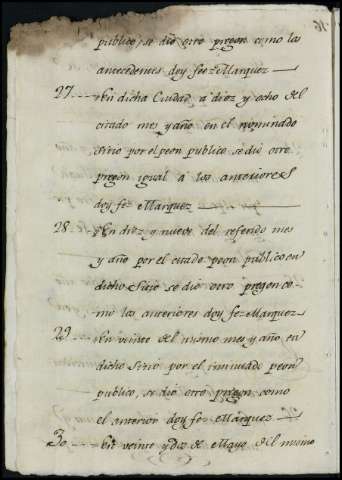 publico, se dió otro pregon como los
antecedentes doy feè Marquez
27 En dicha Ciudad a diez y ocho del
citado mes y año en el nominado
sitio por el peon publico se dió otro
pregon igual a los anteriores
doy fe= Marquez
28 En diez y nueve del referido mes
y año por el citado peon publico en
dicho Sitio se dio otro pregon co-
mo los anteriores doy fe= Marquez
29 En veinte del mismo mes y año en
dicho sitio por el insinuado peon
publico, se dió otro pregon como
el anterior doy fe= Marquez
30 En veinte y dos de Mayo del mismo